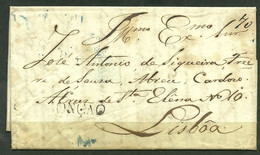 Exmo Snr
José Antonio de Siqueira Frei
re de Souza, Abreu Cardozo
de Sta Elena No 10.
Lisbôa